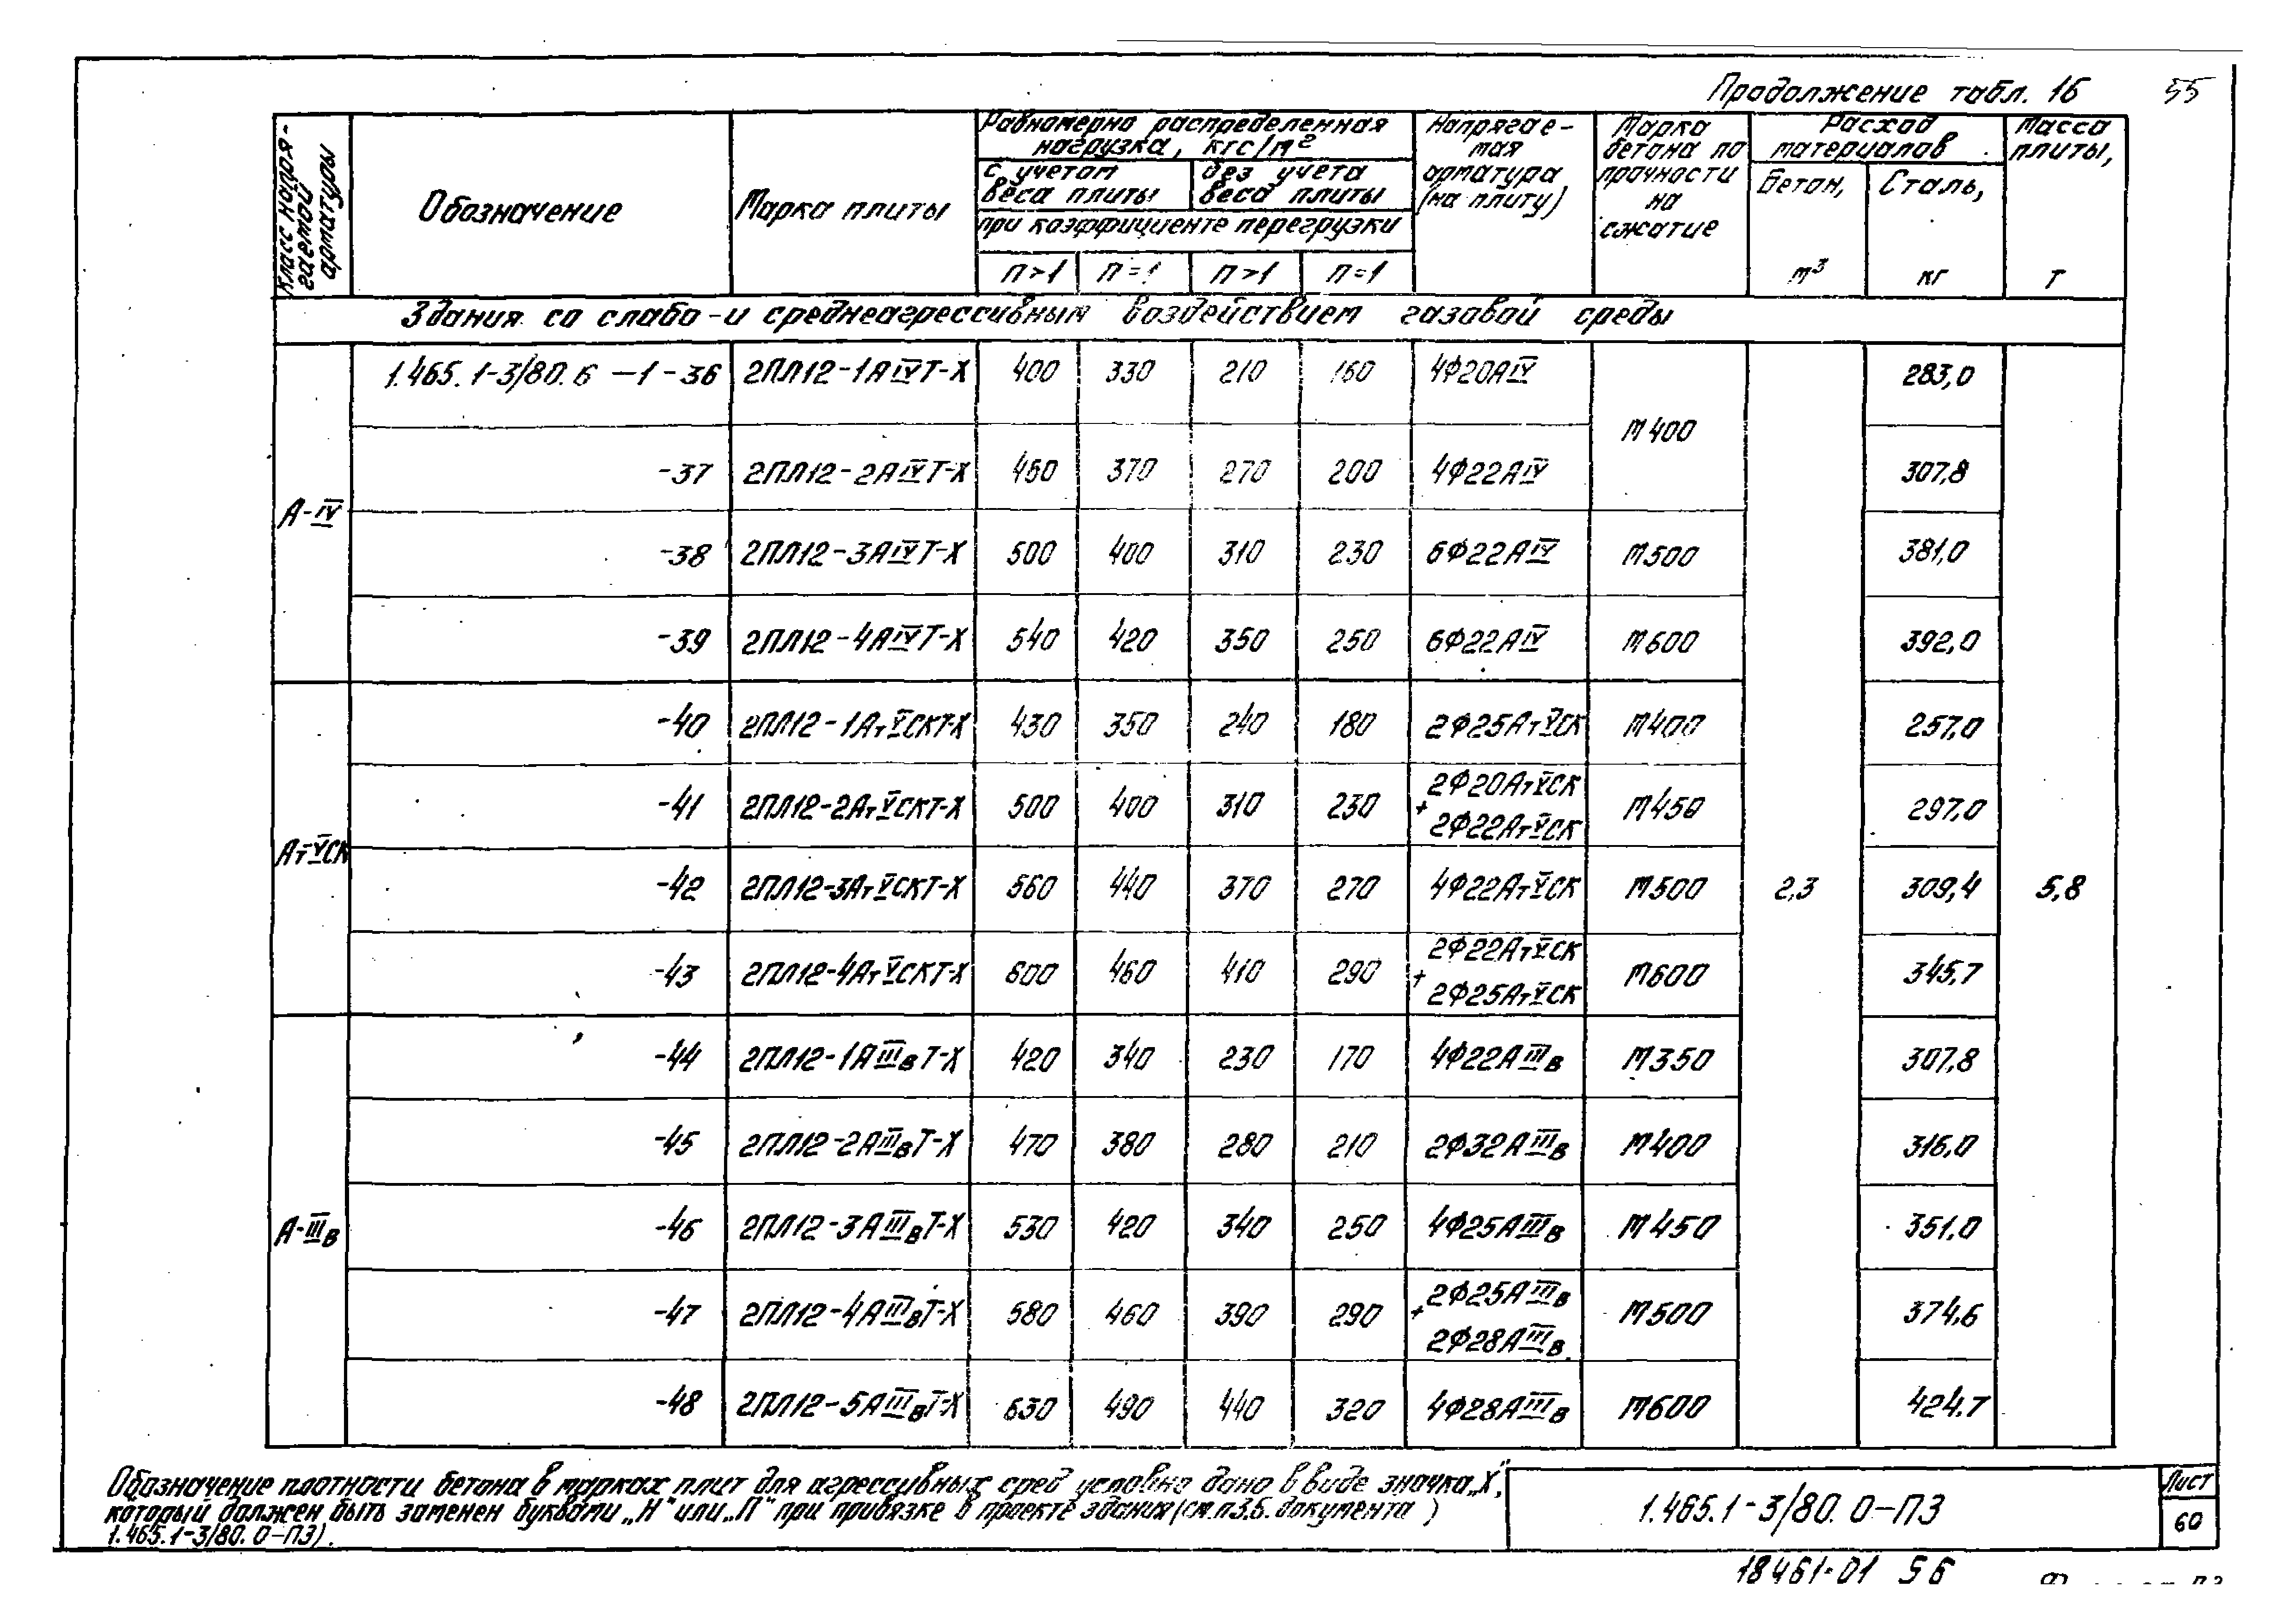 Продолжение табл. 16 55
Класс напря-
гаемой
арматуры
Обозначение
Марка плиты
Равномерно распределенная
нагрузка, кгс/м²
с учетом
веса плиты
без учета
веса плиты
при коэффициенте перегрузки
п>1 п=1 п>1 п=1
Напрягае-
мая
арматура
(на плиту)
Марка
бетона по
прочности
на
сжатие
Расход
материалов
Бетон,
м³
Сталь,
кг
Масса
плиты,
т
Здания со слабо-и среднеагрессивным воздействием газовой среды
А-IV
1.465.1-3/80.6 -1-36 2ПЛ12-1АIVТ-Х 400 330 210 160 4Ф20АIV М400 283,0
-37 2ПЛ12-2АIVТ-Х 460 370 270 200 4Ф22АIV 307,8
-38 2ПЛ12-3АIVТ-Х 500 400 310 230 6Ф22АIV М500 381,0
-39 2ПЛ12-4АIVТ-Х 540 420 350 250 6Ф22АIV М600 392,0
АтVСК
-40 2ПЛ12-1АтVСКТ-Х 430 350 240 180 2Ф25АтVСК М400 257,0
-41 2ПЛ12-2АтVСКТ-Х 500 400 310 230 2Ф20АтVСК + 2Ф22АтVСК М450 297,0
-42 2ПЛ12-3АтVСКТ-Х 560 440 370 270 4Ф22АтVСК М500 2,3 309,4 5,8
-43 2ПЛ12-4АтVСКТ-Х 600 460 410 290 2Ф22АтVСК + 2Ф25АтVСК М600 345,7
А-IIIв
-44 2ПЛ12-1АIIIвТ-Х 420 340 230 170 4Ф22АIIIв М350 307,8
-45 2ПЛ12-2АIIIвТ-Х 470 380 280 210 2Ф32АIIIв М400 316,0
-46 2ПЛ12-3АIIIвТ-Х 530 420 340 250 4Ф25АIIIв М450 351,0
-47 2ПЛ12-4АIIIвТ-Х 580 460 390 290 2Ф25АIIIв + 2Ф28АIIIв М500 374,6
-48 2ПЛ12-5АIIIвТ-Х 630 490 440 320 4Ф28АIIIв М600 424,7
Обозначение плотности бетона в марках плит для агрессивных сред условно дано в виде значка „Х",
который должен быть заменен буквами „Н" или „П" при привязке в проекте здания (см.п3.6. документа )
1.465.1-3/80. 0-ПЗ).
1.465.1-3/80. 0-ПЗ
Лист
60
18461-01 56